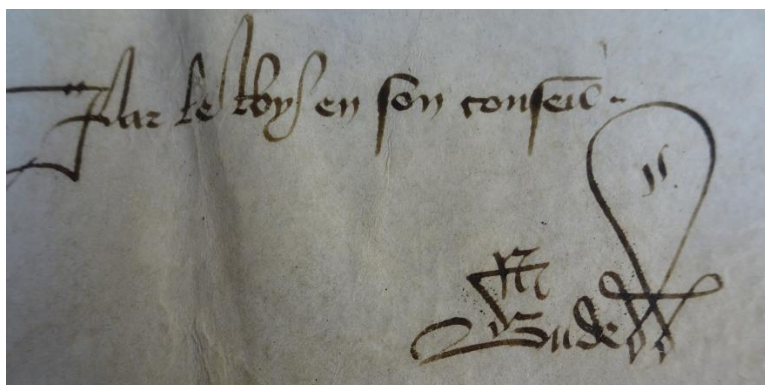 Par le Roy en son conseil
Budé